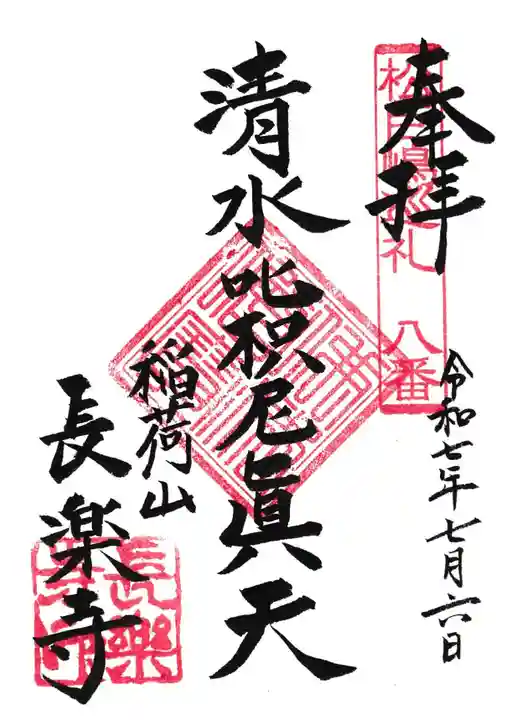 奉拝
八番
令和七年七月六日
清水吒枳尼眞天
稲荷山
長楽寺